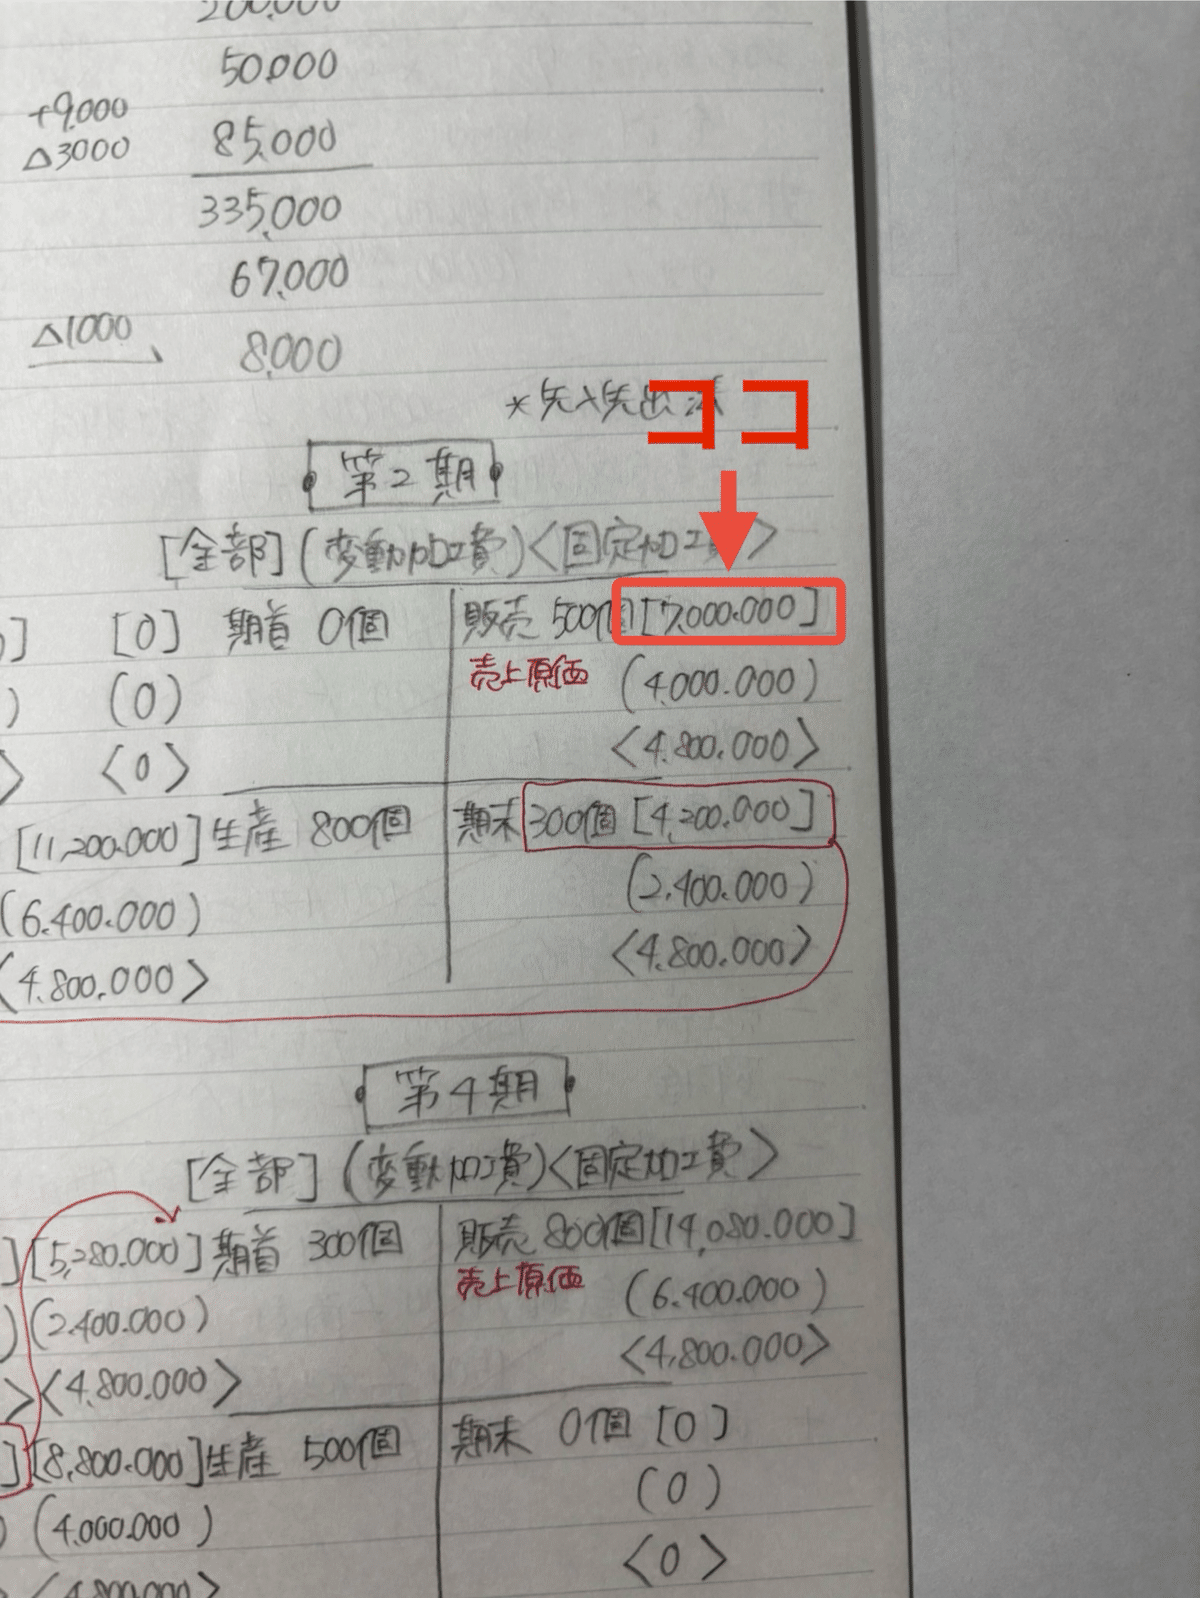 200,000
50,000
+9,000
△3000
85,000
335,000
67,000
△1000
8,000
*先入先出法
ココ
第2期
[全部](変動加工費)<固定加工費>
] [0] 期首 0個
販売 500個[7,000.000]
) (0)
売上原価 (4.000.000)
> <0>
<4.800.000>
[11,200.000]生産 800個
期末 300個 [4,200.000]
(6.400.000)
(2.400.000)
<4.800.000>
<4.800.000>
第4期
[全部](変動加工費)<固定加工費>
][5,280.000]期首 300個
販売 800個[14,080.000]
)(2.400.000)
売上原価 (6.400.000)
><4.800.000>
<4,800.000>
][8,800.000]生産 500個
期末 0個 [0]
) (4.000.000)
(0)
<4.800.000>
<0>